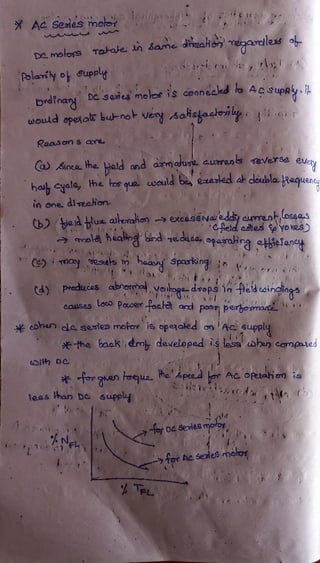 * AC Series motor
DC motors rotate in same direction regardless of
Polarity of supply
Ordinary DC series motor is connected to AC supply. it
would operate but not very satisfactorily.
Reasons are
(a) since the field and armature currents reverse every
half cycle, the torque would be exerted at double frequency
in one direction.
(b) field flux alteration → excessive eddy current losses
(field cores & yokes)
→ more heating and reduces operating efficiency
(c) may results in heavy sparking
(d) produces abnormal voltage drops in field windings
causes low power factor and poor performance
* when dc series motor is operated on AC supply
* the back emf developed is less when compared
with DC
* for given torque the speed for AC operation is
less than DC supply
→ for DC series motor
% N FL
→ for AC series motor
% T FL